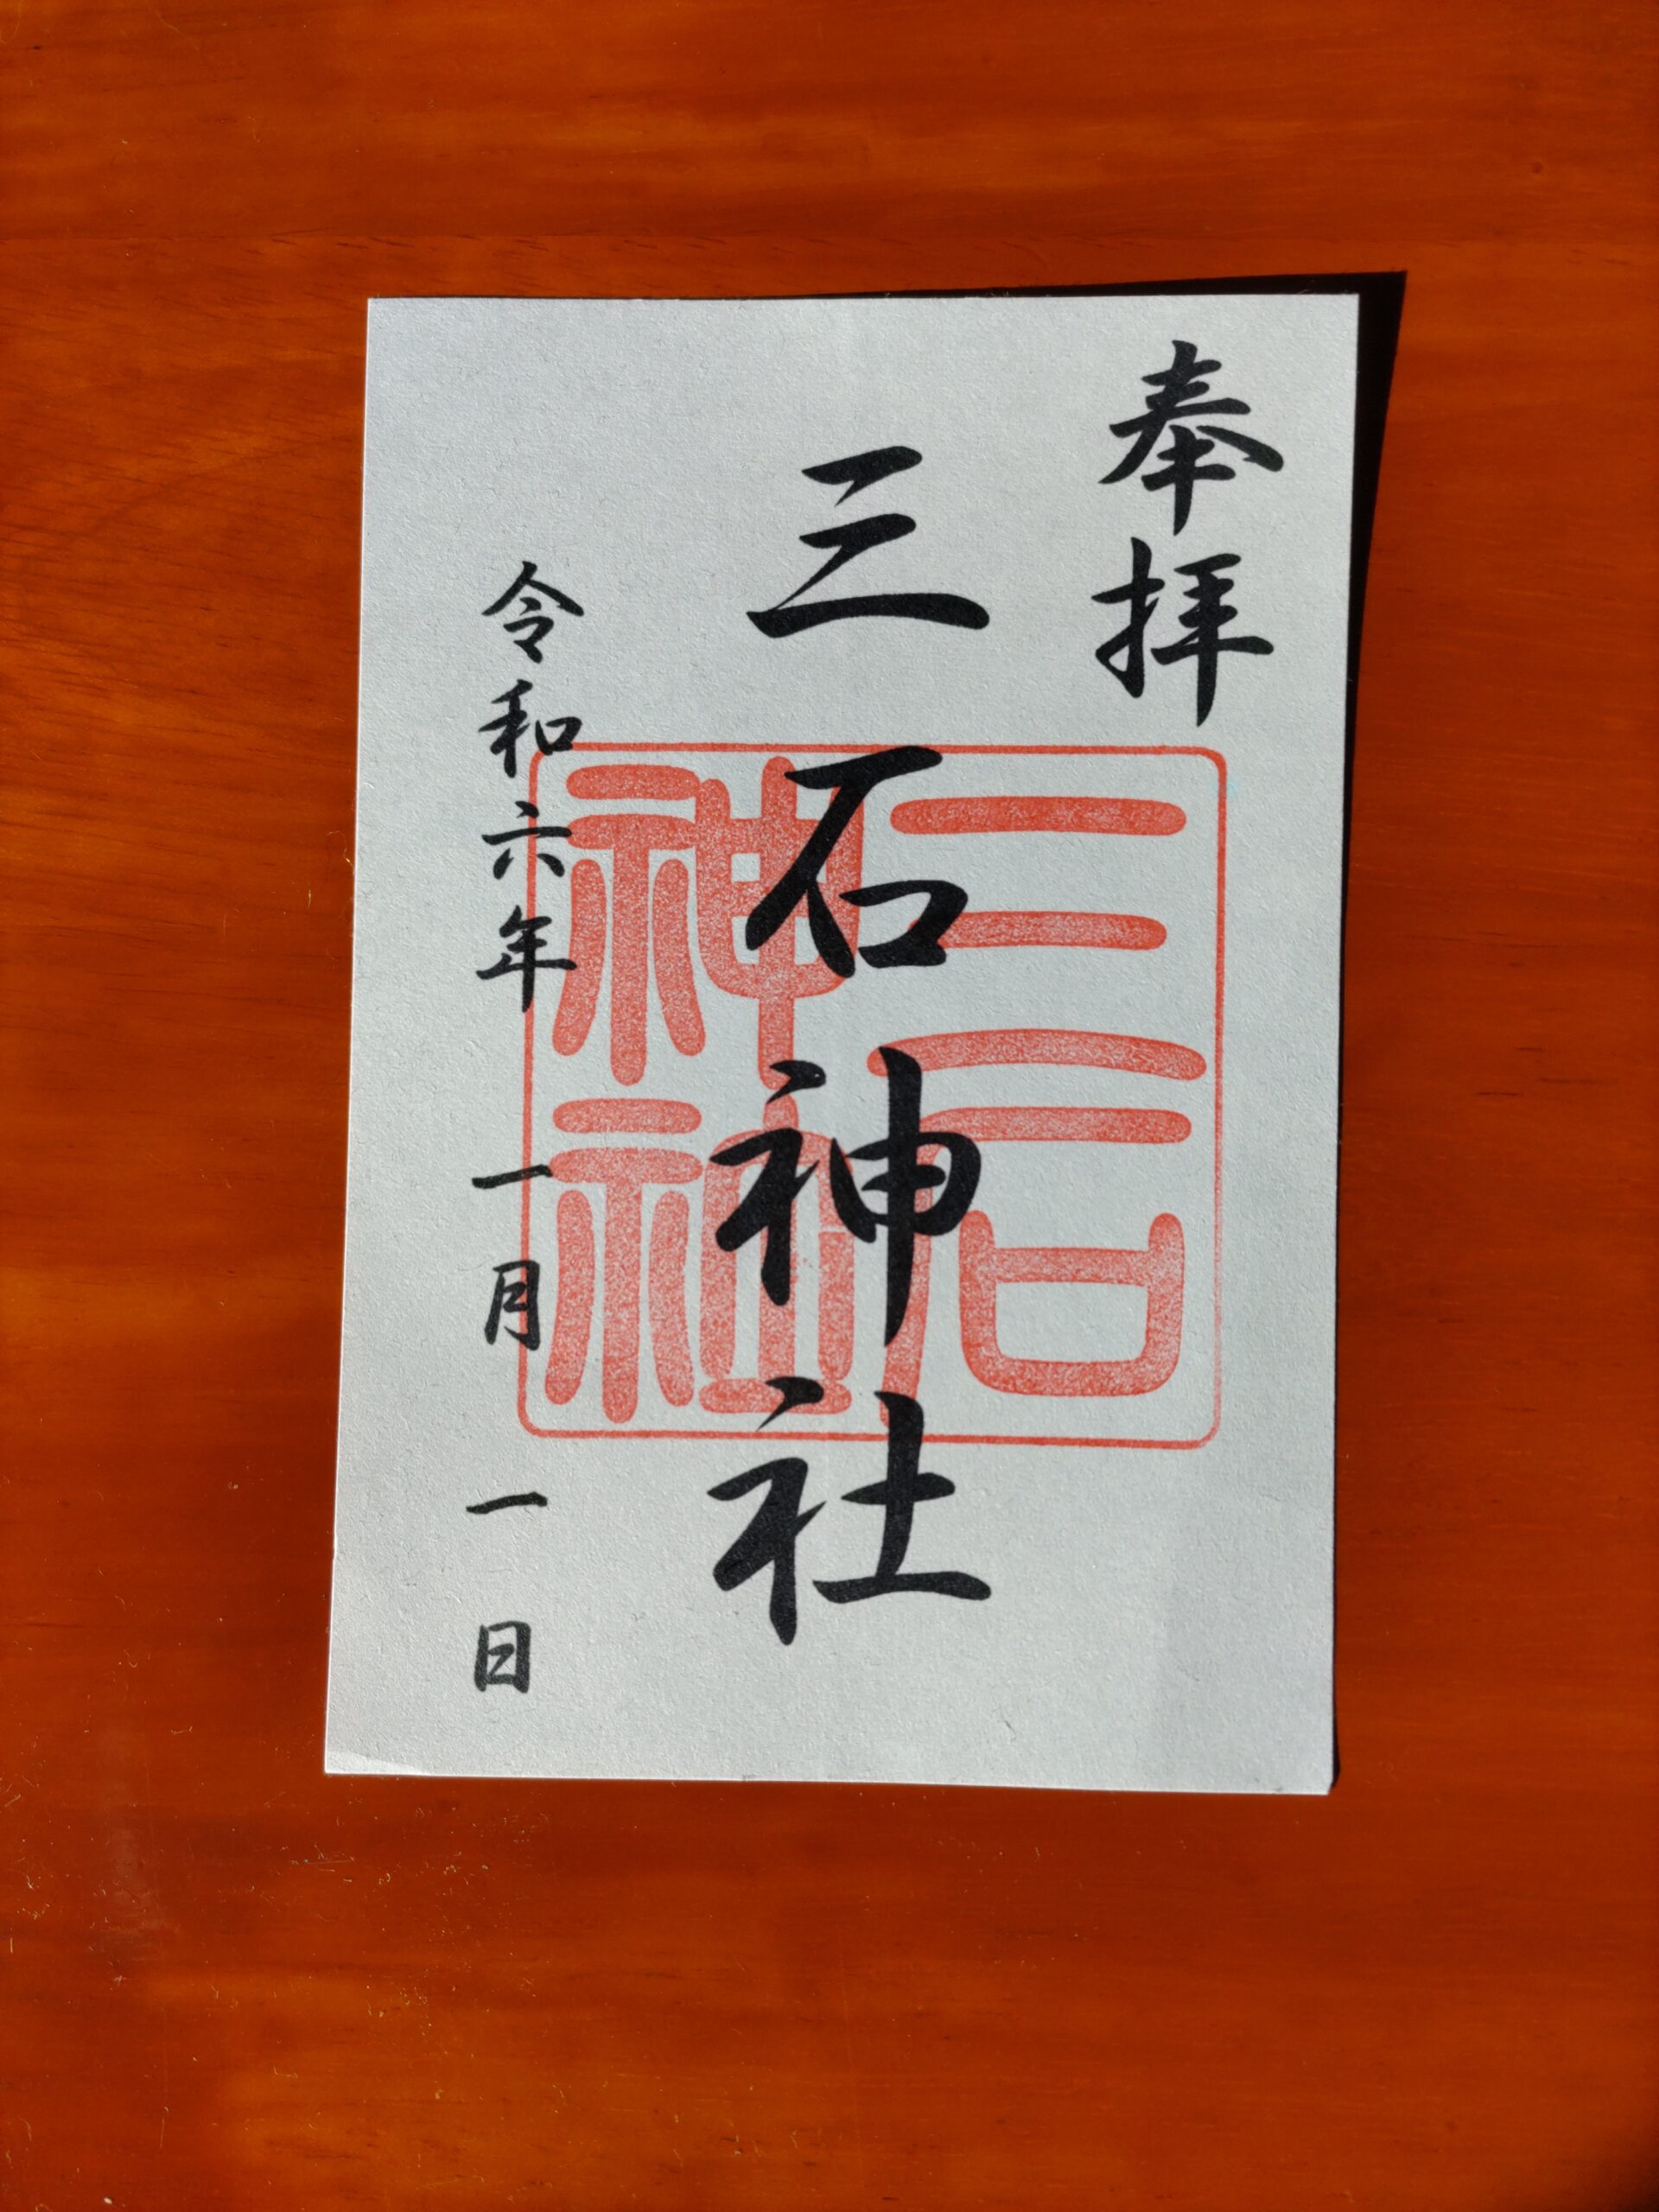 奉拝
三石神社
三石神社
令和六年一月一日